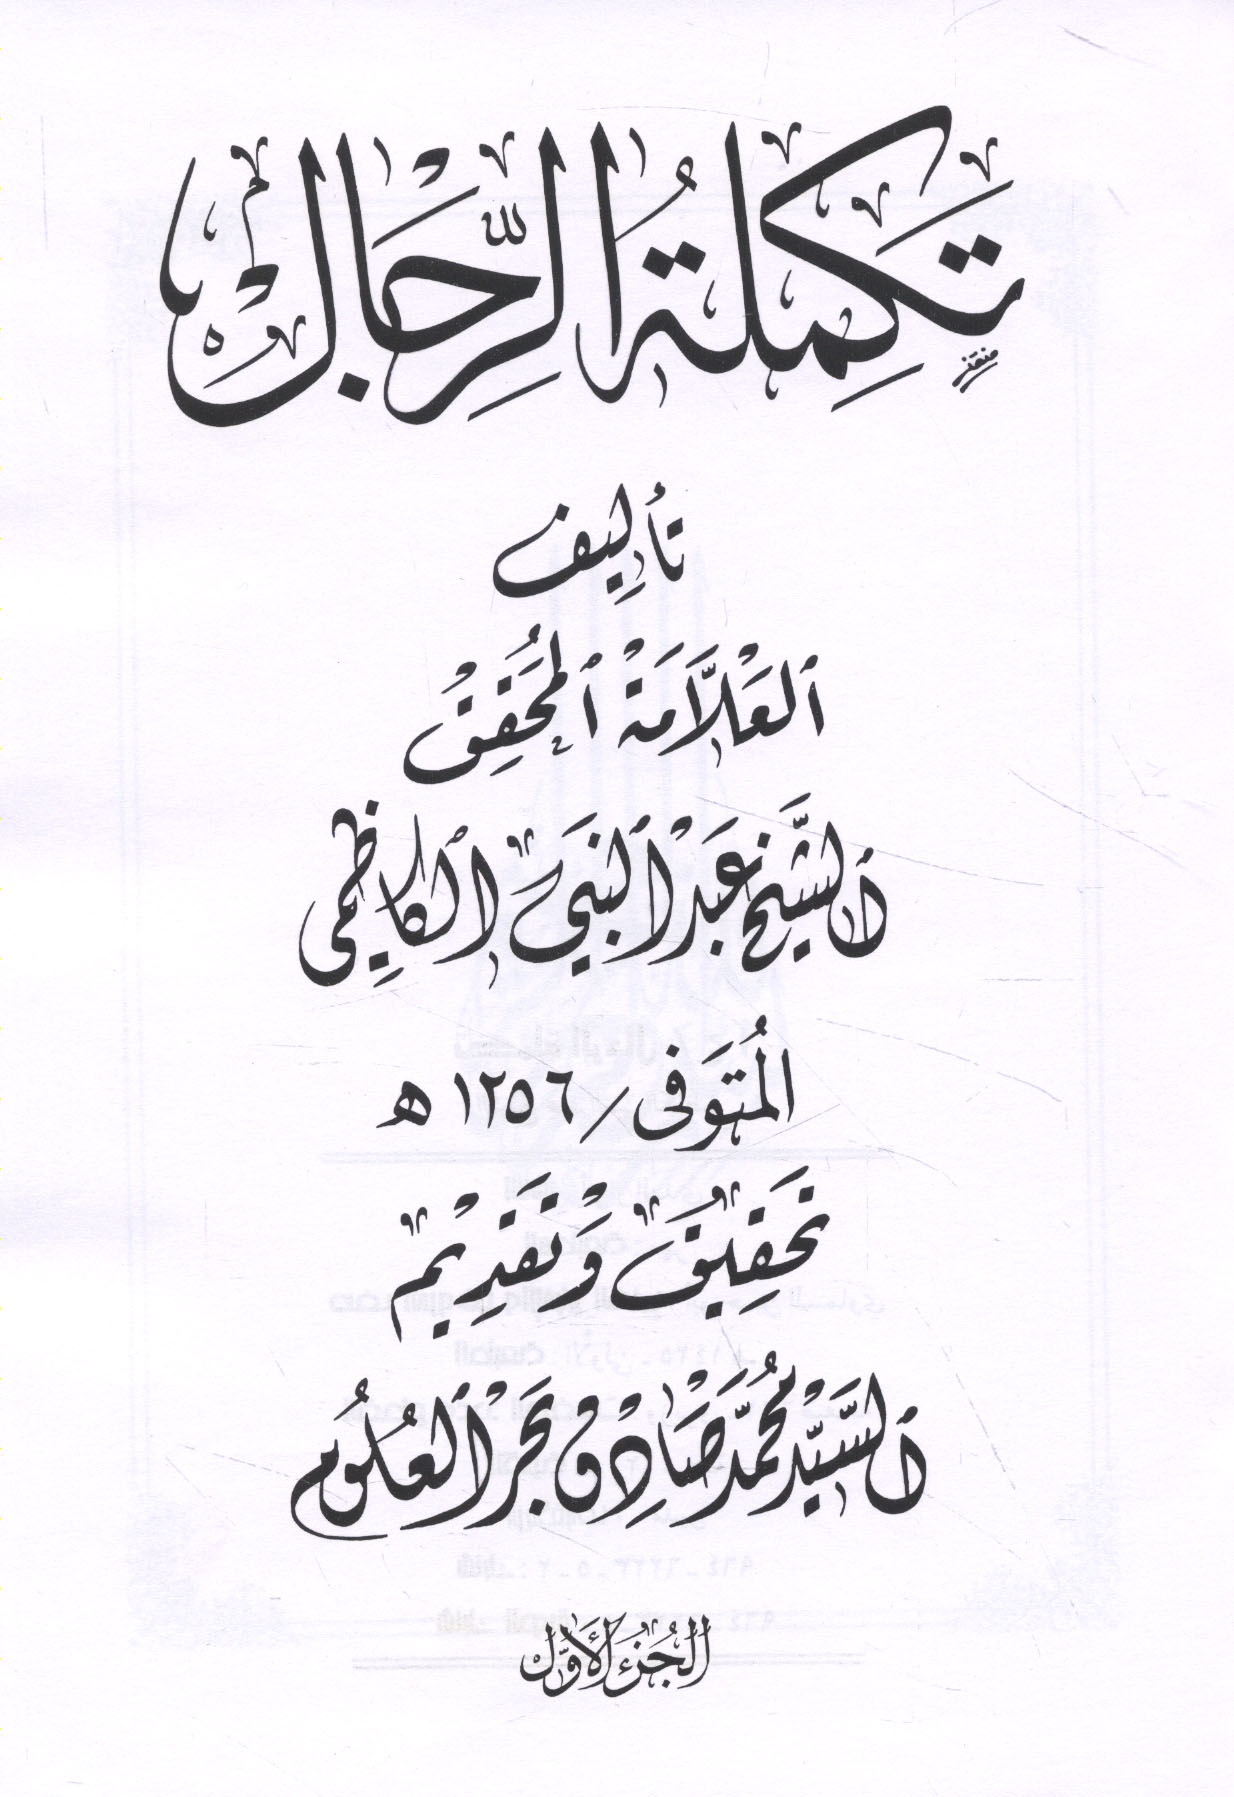 تَكمِلَةُ الرِّجَال
تأليف
العَلَّامَة المُحَقِّق
الشَّيخ عَبد النَّبي الكَاظِمي
المُتَوَفى / ١٢٥٦ ه
تَحقِيق وَتَقدِيم
السَّيِّد مُحَمَّد صَادِق بَحر العُلُوم
الجُزءُ الأَوَّل